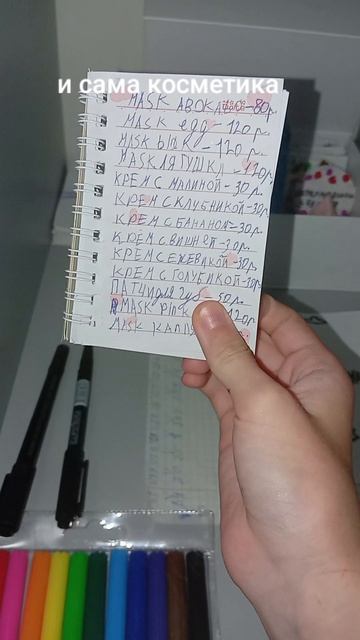 и сама косметика
MASK АВОКА -80р.
MASK egg -120р.
MASK blak -120р.
MASK ЛЯГУШКА -120р.
КРЕМ С МАЛИНОЙ -30р.
КРЕМ С КЛУБНИКОЙ -30р.
КРЕМ С БАНАНОМ -30р.
КРЕМ С ВИШНЕЙ -30р.
КРЕМ С ЕЖЕВИКОЙ -30р.
КРЕМ С ГОЛУБИКОЙ -30р.
ПАТЧИ для губ -50р.
MASK pink 120р.
MASK